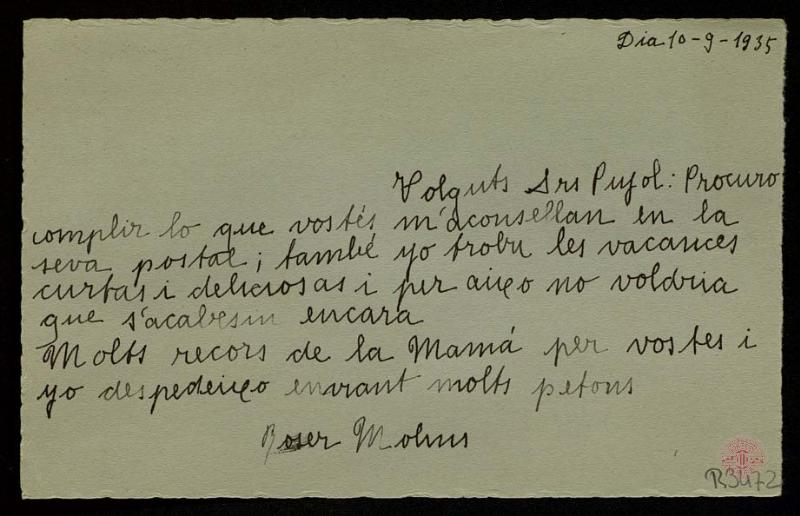 Dia 10-9-1935
Volguts Srs Pujol: Procuro
complir lo que vostés m'aconsellan en la
seva postal; també yo trobu les vacances
curtas i deliciosas i per aixo no voldria
que s'acabesin encara
Molts recors de la Mamá per vostes i
yo despedeixo enviant molts petons
Roser Molins
R.3472